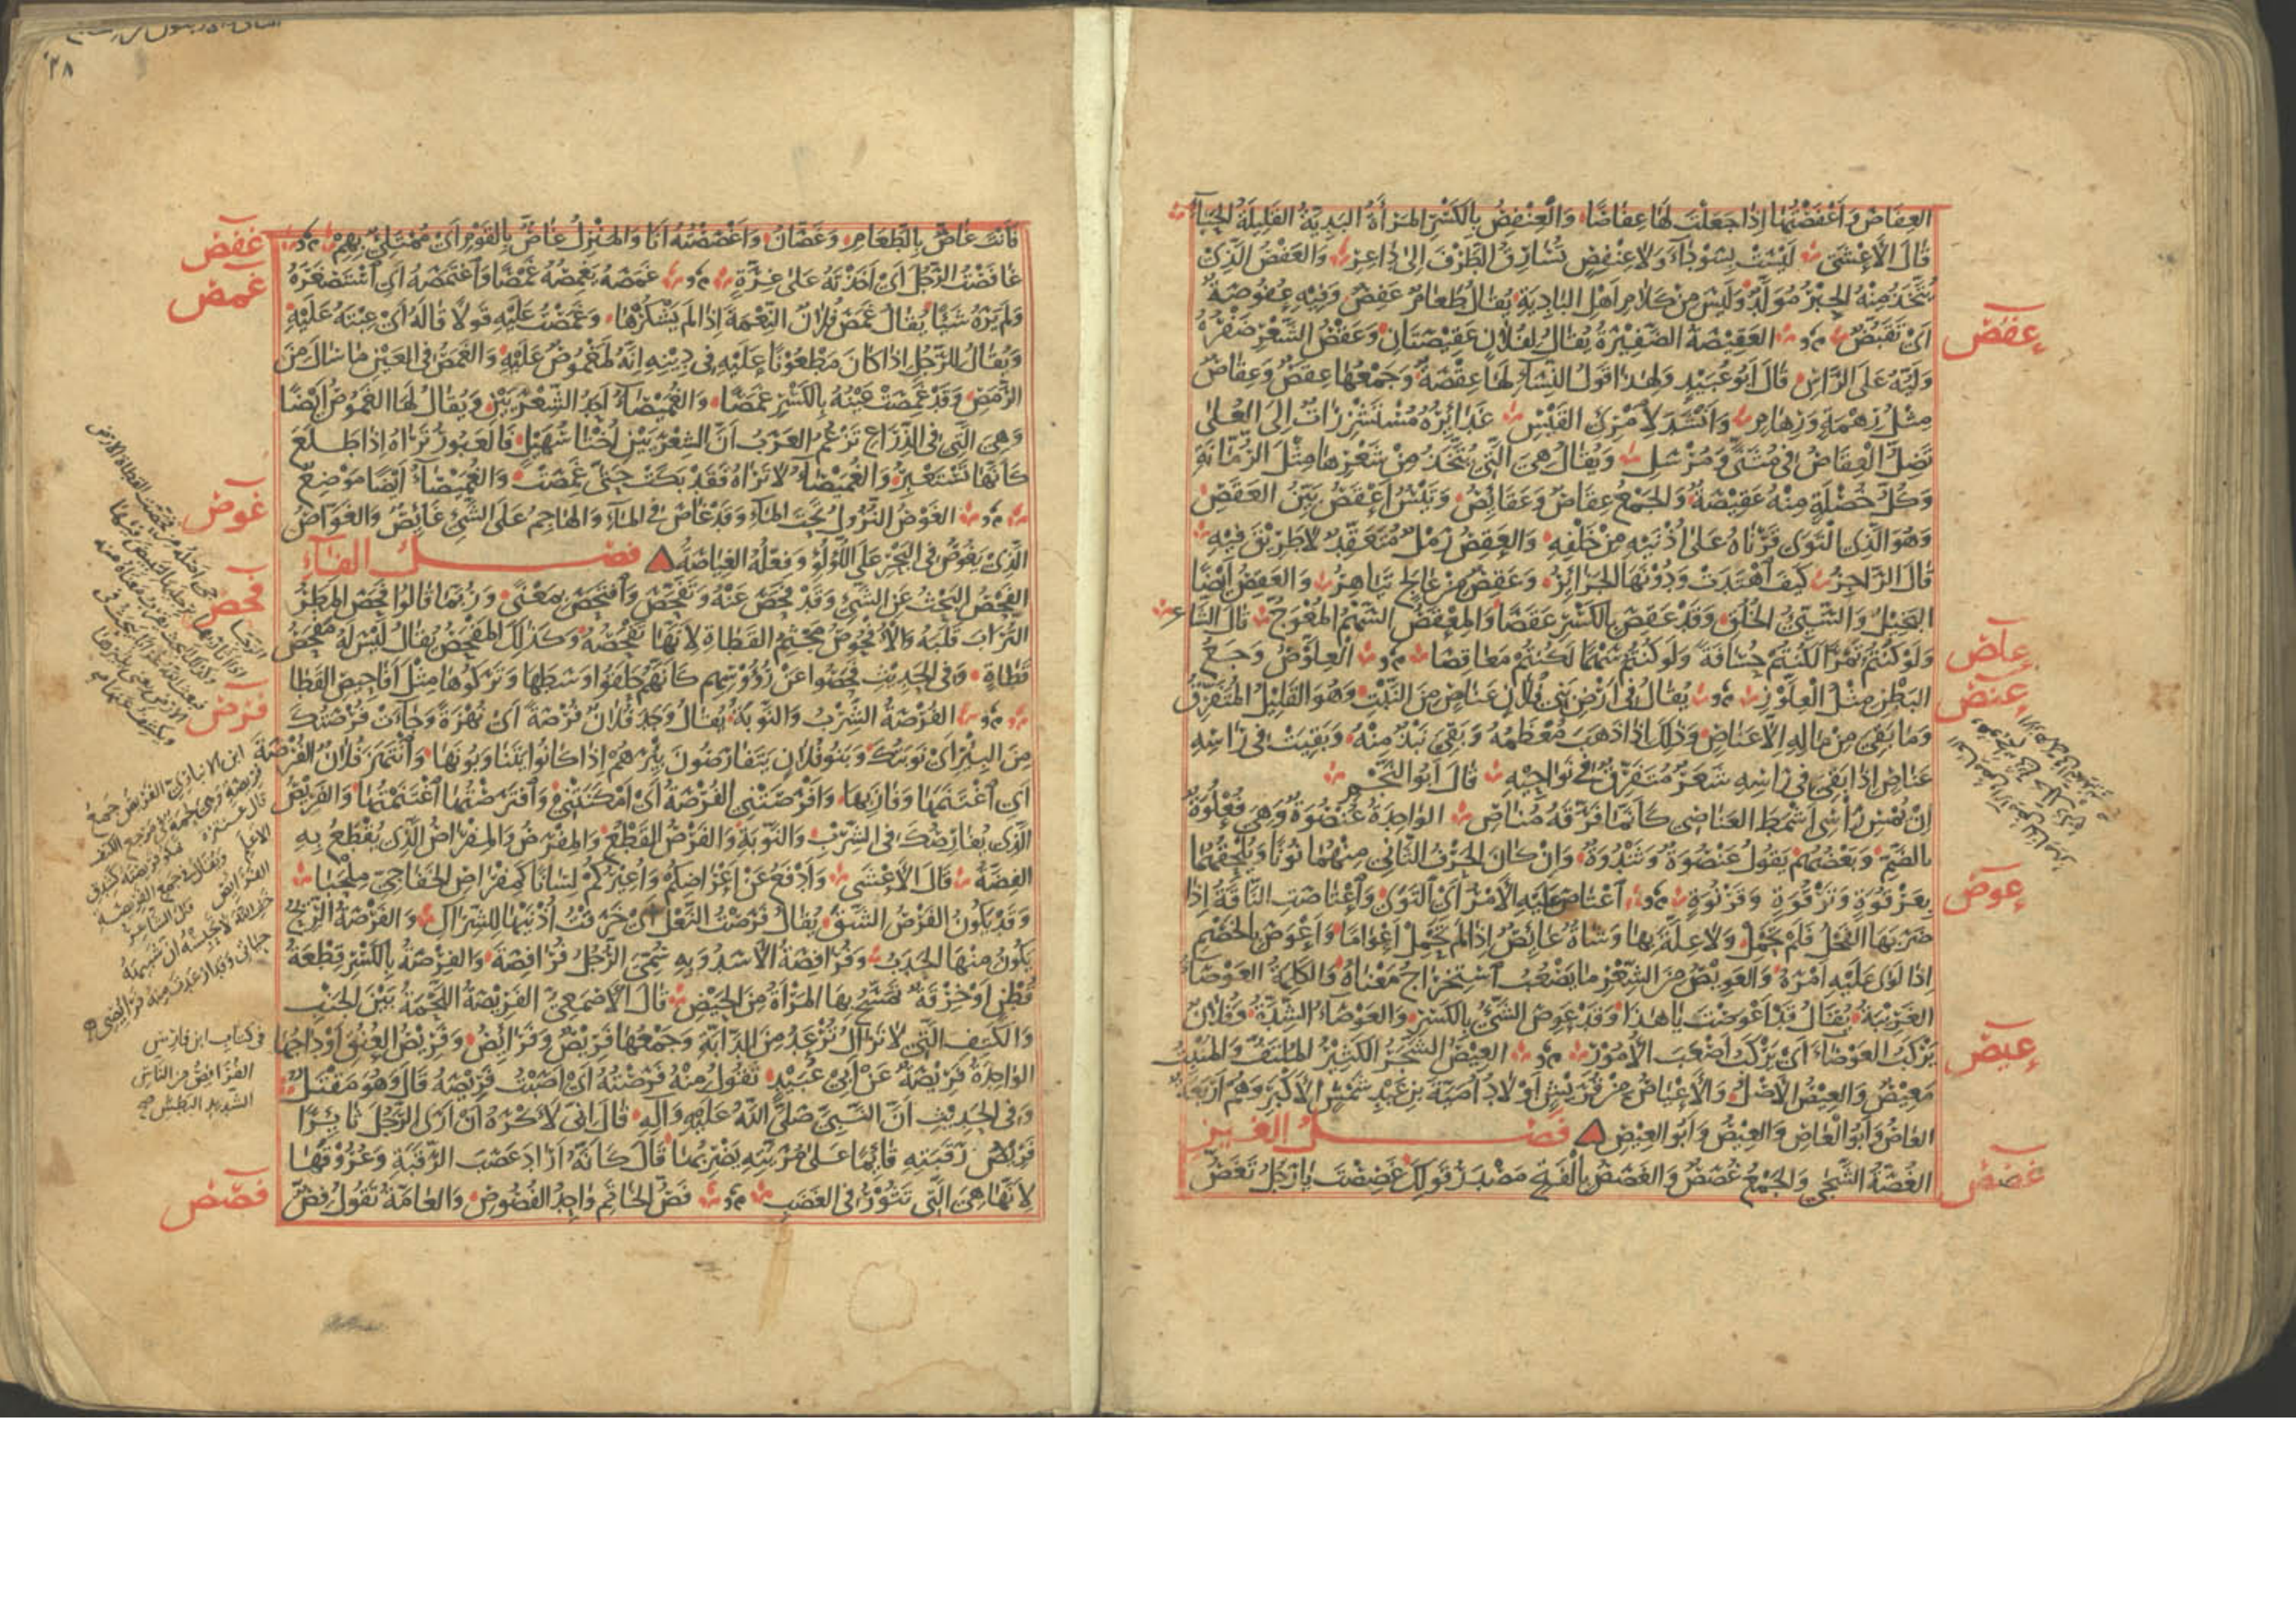 العِفَاصَ وَأَعْفَصْتُهَا إِذَا جَعَلْتَ لَهَا عِفَاصًا وَالعِنْفِصُ بِالكَسْرِ المَرْأَةُ البَذِيَّةُ القَلِيلَةُ الحَيَاءِ
قَالَ الأَعْشَى لَيْسَتْ بِسَوْدَاءَ وَلَا عِنْفِصٍ تُسَارِقُ الطَّرْفَ إِلَى دَاعِرِ وَالعَفْصُ الَّذِي
يُتَّخَذُ مِنْهُ الحِبْرُ مُوَلَّدٌ وَلَيْسَ مِنْ كَلَامِ أَهْلِ البَادِيَةِ يُقَالُ طَعَامٌ عَفِصٌ وَفِيهِ عُفُوصَةٌ
أَيْ تَقَبُّضٌ العَقِيصَةُ الضَّفِيرَةُ يُقَالُ لِفُلَانٍ عَقِيصَتَانِ وَعَقْصُ الشَّعْرِ ضَفْرُهُ
وَلَيُّهُ عَلَى الرَّأْسِ قَالَ أَبُو عُبَيْدٍ وَلِهَذَا قَوْلُ النِّسَاءِ لَهَا عِقْصَةٌ وَجَمْعُهَا عِقَصٌ وَعِقَاصٌ
مِثْلُ رِهْمَةٍ وَرِهَامٍ وَأَنْشَدَ لِامْرِئِ القَيْسِ غَدَائِرُهُ مُسْتَشْزِرَاتٌ إِلَى العُلَى
تَضِلُّ العِقَاصُ فِي مُثَنًّى وَمُرْسَلِ وَيُقَالُ هِيَ الَّتِي تُتَّخَذُ مِنْ شَعْرِهَا مِثْلَ الرُّمَّانَةِ
وَكُلُّ خُصْلَةٍ مِنْهُ عَقِيصَةٌ وَالجَمْعُ عِقَاصٌ وَعَقَائِصُ وَتَيْسٌ أَعْقَصُ بَيِّنُ العَقَصِ
وَهُوَ الَّذِي التَوَى قَرْنَاهُ عَلَى أُذُنَيْهِ مِنْ خَلْفِهِ وَالعَقِصُ رَمْلٌ مُتَعَقِّدٌ لَا طَرِيقَ فِيهِ
قَالَ الرَّاجِزُ كَيْفَ اهْتَدَتْ وَدُونَهَا الجَزَائِرُ وَعَقِصٌ مِنْ عَالِجٍ تَيَاهِرُ وَالعَقِصُ أَيْضًا
البَخِيلُ وَالسَّيِّئُ الخُلُقِ وَقَدْ عَقِصَ بِالكَسْرِ عَقَصًا وَالمِعْقَصُ السَّهْمُ المُعْوَجُّ قَالَ الشَّاعِرُ
وَلَوْ كُنْتُمُ تَمْرًا لَكُنْتُمْ حُسَافَةً وَلَوْ كُنْتُمُ سَهْمًا لَكُنْتُمْ مَعَاقِصَا العِلَّوْصُ وَجَعُ
البَطْنِ مِثْلُ العِلَّوْزِ يُقَالُ فِي أَرْضِ بَنِي فُلَانٍ عَنَاصٍ مِنَ النَّبْتِ وَهُوَ القَلِيلُ المُتَفَرِّقُ
وَمَا بَقِيَ مِنْ مَالِهِ إِلَّا عَنَاصٍ وَذَلِكَ إِذَا ذَهَبَ مُعْظَمُهُ وَبَقِيَ نَبْذٌ مِنْهُ وَبَقِيَتْ فِي رَأْسِهِ
عَنَاصٍ إِذَا بَقِيَ فِي رَأْسِهِ شَعَرٌ مُتَفَرِّقٌ فِي نَوَاحِيهِ قَالَ أَبُو النَّجْمِ
إِنْ يُمْسِ رَأْسِي أَشْمَطَ العَنَاصِي كَأَنَّمَا فَرَّقَهُ مُنَاصِ الوَاحِدَةُ عُنْصُوَةٌ وَهِيَ فُعْلُوَةٌ
بِالضَّمِّ وَبَعْضُهُمْ يَقُولُ عَنْصُوَةٌ وَثَنْدُوَةٌ وَإِنْ كَانَ الحَرْفُ الثَّانِي مِنْهُمَا نُونًا وَيُلْحِقُهُمَا
بِعَرْقُوَةٍ وَتَرْقُوَةٍ وَقَرْنُوَةٍ اعْتَاصَ عَلَيْهِ الأَمْرُ أَيْ التَوَى وَاعْتَاصَتِ النَّاقَةُ إِذَا
ضَرَبَهَا الفَحْلُ فَلَمْ تَحْمِلْ وَلَا عِلَّةَ بِهَا وَشَاةٌ عَائِصٌ إِذَا لَمْ تَحْمِلْ أَعْوَامًا وَأَعْوَصَ بِالخَصْمِ
إِذَا لَوَى عَلَيْهِ أَمْرَهُ وَالعَوِيصُ مِنَ الشِّعْرِ مَا يَصْعُبُ اسْتِخْرَاجُ مَعْنَاهُ وَالكَلِمَةُ العَوْصَاءُ
الغَرِيبَةُ يُقَالُ قَدْ أَعْوَصْتَ يَا هَذَا وَقَدْ عَوِصَ الشَّيْءُ بِالكَسْرِ وَالعَوْصَاءُ الشِّدَّةُ وَفُلَانٌ
يَرْكَبُ العَوْصَاءَ أَيْ يَرْكَبُ أَصْعَبَ الأُمُورِ العِيصُ الشَّجَرُ الكَثِيرُ المُلْتَفُّ وَالمَنْبِتُ
مَعِيصٌ وَالعِيصُ الأَصْلُ وَالأَعْيَاصُ مِنْ قُرَيْشٍ أَوْلَادُ أُمَيَّةَ بْنِ عَبْدِ شَمْسٍ الأَكْبَرِ وَهُمْ أَرْبَعَةٌ
العَاصُ وَأَبُو العَاصِ وَالعِيصُ وَأَبُو العِيصِ فَصْلُ الغَيْنِ
الغُصَّةُ الشَّجَى وَالجَمْعُ غُصَصٌ وَالغَصَصُ بِالفَتْحِ مَصْدَرُ قَوْلِكَ غَصِصْتَ يَا رَجُلُ تَغَصُّ
عقص
علص
عنص
عوص
عيص
غصص
٢٨
فَأَنْتَ غَاصٌّ بِالطَّعَامِ وَغَصَّانُ وَأَغْصَصْتُهُ أَنَا وَالمَنْزِلُ غَاصٌّ بِالقَوْمِ أَيْ مُمْتَلِئٌ بِهِمْ
غَافَصْتُ الرَّجُلَ أَيْ أَخَذْتَهُ عَلَى غِرَّةٍ غَمَصَهُ يَغْمِصُهُ غَمْصًا وَاغْتَمَصَهُ أَيْ اسْتَصْغَرَهُ
وَلَمْ يَرَهُ شَيْئًا يُقَالُ غَمَصَ فُلَانٌ النِّعْمَةَ إِذَا لَمْ يَشْكُرْهَا وَغَمَصْتُ عَلَيْهِ قَوْلًا قَالَهُ أَيْ عِبْتَهُ عَلَيْهِ
وَيُقَالُ لِلرَّجُلِ إِذَا كَانَ مَطْعُونًا عَلَيْهِ فِي دِينِهِ إِنَّهُ لَمَغْمُوصٌ عَلَيْهِ وَالغَمَصُ فِي العَيْنِ مَا سَالَ مِنَ
الرَّمَصِ وَقَدْ غَمِصَتْ عَيْنُهُ بِالكَسْرِ غَمَصًا وَالغُمَيْصَاءُ أَحَدُ الشِّعْرَيَيْنِ وَيُقَالُ لَهَا الغَمُوصُ أَيْضًا
وَهِيَ الَّتِي فِي الذِّرَاعِ تَزْعُمُ العَرَبُ أَنَّ الشِّعْرَيَيْنِ أُخْتَا سُهَيْلٍ فَالعَبُورُ تَرَاهُ إِذَا طَلَعَ
كَأَنَّهَا تَسْتَعْبِرُ وَالغُمَيْصَاءُ لَا تَرَاهُ فَقَدْ بَكَتْ حَتَّى غَمِصَتْ وَالغُمَيْصَاءُ أَيْضًا مَوْضِعٌ
الغَوْصُ النُّزُولُ تَحْتَ المَاءِ وَقَدْ غَاصَ فِي المَاءِ وَالهَاجِمُ عَلَى الشَّيْءِ غَائِصٌ وَالغَوَّاصُ
الَّذِي يَغُوصُ فِي البَحْرِ عَلَى اللُّؤْلُؤِ وَفِعْلُهُ الغِيَاصَةُ فَصْلُ الفَاءِ
الفَحْصُ البَحْثُ عَنِ الشَّيْءِ وَقَدْ فَحَصَ عَنْهُ وَتَفَحَّصَ وَافْتَحَصَ بِمَعْنًى وَرُبَّمَا قَالُوا فَحَصَ المَطَرُ
التُّرَابَ قَلَبَهُ وَالأُفْحُوصُ مَجْثَمُ القَطَاةِ لِأَنَّهَا تَفْحَصُهُ وَكَذَلِكَ المَفْحَصُ يُقَالُ لَيْسَ لَهُ مَفْحَصُ
قَطَاةٍ وَفِي الحَدِيثِ فَحَصُوا عَنْ رُؤُوسِهِمْ كَأَنَّهُمْ حَلَقُوا وَسَطَهَا وَتَرَكُوهَا مِثْلَ أَفَاحِيصِ القَطَا
الفُرْصَةُ الشِّرْبُ وَالنَّوْبَةُ يُقَالُ وَجَدَ فُلَانٌ فُرْصَةً أَيْ نُهْزَةً وَجَاءَتْ فُرْصَتُكَ
مِنَ البِئْرِ أَيْ نَوْبَتُكَ وَبَنُو فُلَانٍ يَتَفَارَصُونَ بِئْرَهُمْ إِذَا كَانُوا يَتَنَاوَبُونَهَا وَانْتَهَزَ فُلَانٌ الفُرْصَةَ
أَيْ اغْتَنَمَهَا وَفَازَ بِهَا وَأَفْرَصَتْنِي الفُرْصَةُ أَيْ أَمْكَنَتْنِي وَافْتَرَصْتُهَا اغْتَنَمْتُهَا وَالفَرِيصُ
الَّذِي يُفَارِصُكَ فِي الشِّرْبِ وَالنَّوْبَةِ وَالفَرْصُ القَطْعُ وَالمِفْرَصُ وَالمِفْرَاصُ الَّذِي يُقْطَعُ بِهِ
الفِضَّةُ قَالَ الأَعْشَى وَأَدْفَعُ عَنْ أَعْرَاضِكُمْ وَأُعِيرُكُمْ لِسَانًا كَمِفْرَاصِ الخَفَاجِيِّ مِلْحَبَا
وَقَدْ يَكُونُ الفَرْصُ الشَّقَّ يُقَالُ فَرَصْتُ النَّعْلَ أَيْ خَرَقْتُ أُذُنَيْهَا لِلشِّرَاكِ وَالفَرْصَةُ الرِّيحُ
يَكُونُ مِنْهَا الحَدَبُ وَفُرَافِصَةُ الأَسَدُ وَبِهِ سُمِّيَ الرَّجُلُ فُرَافِصَةَ وَالفِرْصَةُ بِالكَسْرِ قِطْعَةُ
قُطْنٍ أَوْ خِرْقَةٌ تَمَسَّحُ بِهَا المَرْأَةُ مِنَ الحَيْضِ قَالَ الأَصْمَعِيُّ الفَرِيصَةُ اللَّحْمَةُ بَيْنَ الجَنْبِ
وَالكَتِفِ الَّتِي لَا تَزَالُ تُرْعَدُ مِنَ الدَّابَّةِ وَجَمْعُهَا فَرِيصٌ وَفَرَائِصُ وَفَرِيصُ العُنُقِ أَوْدَاجُهَا
الوَاحِدَةُ فَرِيصَةٌ عَنْ أَبِي عُبَيْدٍ تَقُولُ مِنْهُ فَرَصْتُهُ أَيْ أَصَبْتُ فَرِيصَهُ قَالَ وَهُوَ مَقْتَلٌ
وَفِي الحَدِيثِ أَنَّ النَّبِيَّ صَلَّى اللَّهُ عَلَيْهِ وَآلِهِ قَالَ إِنِّي لَأَكْرَهُ أَنْ أَرَى الرَّجُلَ ثَائِرًا
فَرِيصُ رَقَبَتِهِ قَائِمًا عَلَى مُرَيَّتِهِ يَضْرِبُهَا قَالَ كَأَنَّهُ أَرَادَ عَصَبَ الرَّقَبَةِ وَعُرُوقَهَا
لِأَنَّهَا هِيَ الَّتِي تَثُورُ فِي الغَضَبِ فَصُّ الخَاتَمِ وَاحِدُ الفُصُوصِ وَالعَامَّةُ تَقُولُ فِصٌّ
غفص
غمص
غوص
فحص
فرص
فصص
ابن الأنباري الفريص جمع
فريصة وهي لحمة في مرجع الكتف
في كتاب ابن فارس
الفرافص من الناس
الشديد البطش